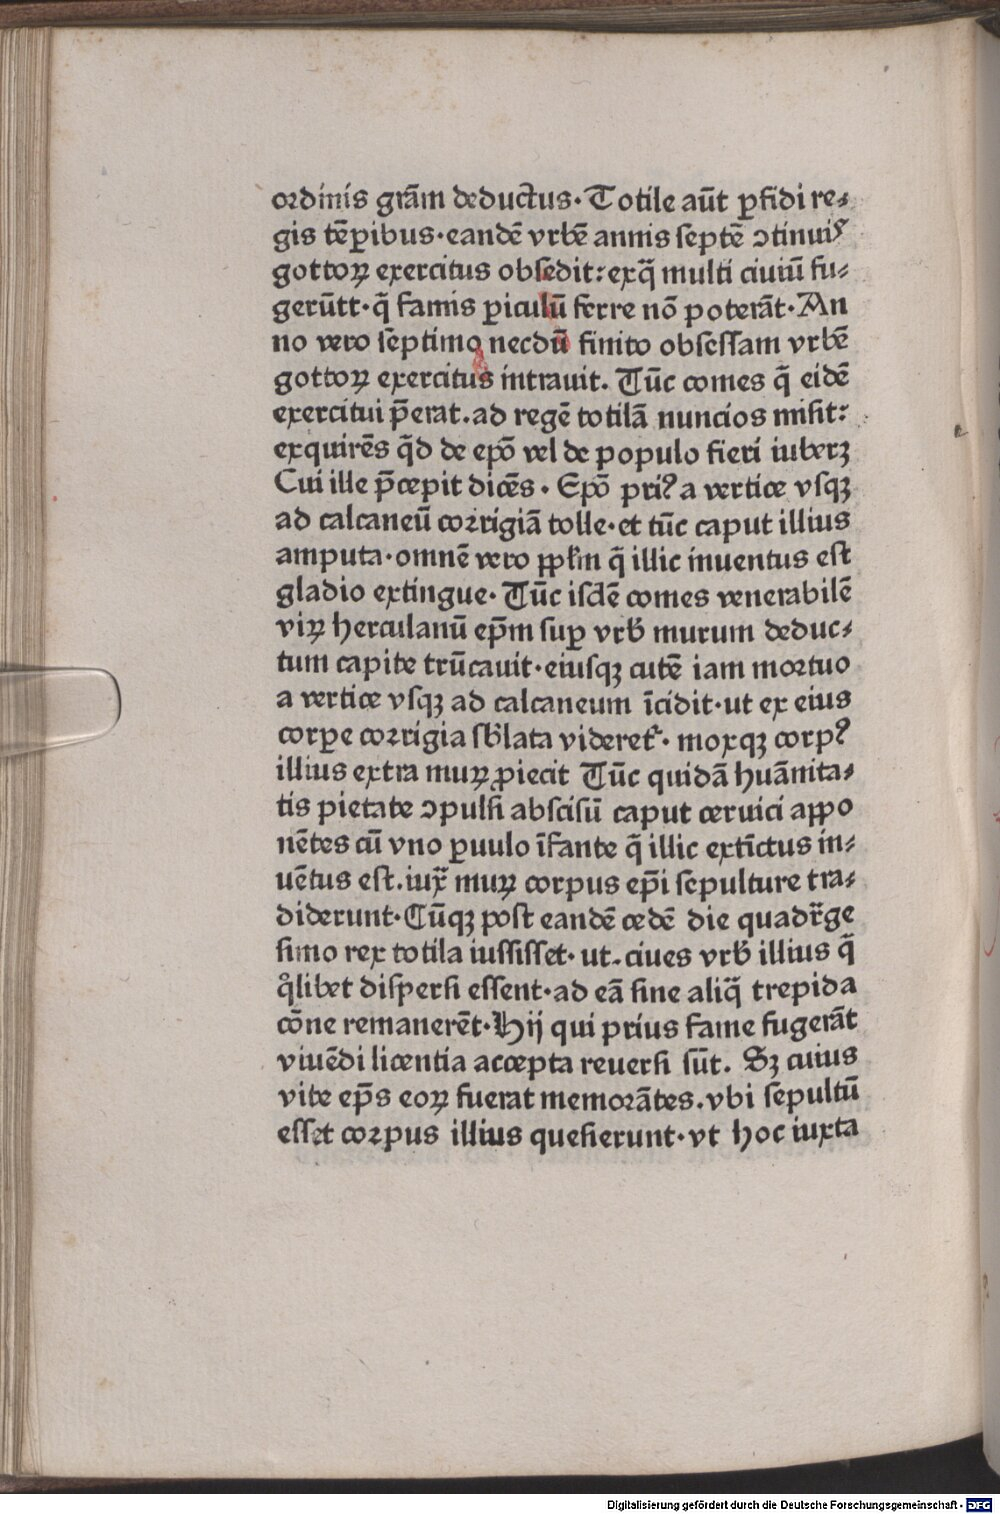 ordinis grām deductus· Totile aūt ꝑfidi re⸗
gis tēꝑibus·eandē vrbē annis septē ꝯtinuiꝰ
gottoꝝ exercitus obsedit:exq̄ multi ciuiū fu⸗
gerūtt·q̄ famis ꝑiculū ferre nō poterāt·An
no vero septimo necdū finito obsessam vrbē
gottoꝝ exercitus intrauit. Tūc comes q̄ eidē
exercitui p̄erat.ad regē totilā nuncios misit:
exquirēs q̄d de epō vel de populo fieri iuberꝫ
Cui ille p̄cepit dicēs· Epō priꝰ a vertice vsqꝫ
ad calcaneū corrigiā tolle·et tūc caput illius
amputa·omnē vero pp̄lm q̄ illic inuentus est
gladio extingue· Tūc isdē comes venerabilē
viꝝ herculanū ep̄m suꝑ vrb̄ murum deduc⸗
tum capite trūcauit·eiusqꝫ cutē iam mortuo
a vertice vsqꝫ ad calcaneum īcidit·ut ex eius
corꝑe corrigia sb̄lata videret᷑· moxqꝫ corpꝰ
illius extra muꝝ ꝓiecit Tūc quidā huāmita⸗
tis pietate ꝯpulsi abscisū caput ceruici appo
nētes cū vno ꝑuulo īfante q̄ illic extīctus in⸗
uētus est.iux̄ muꝝ corpus ep̄i sepulture tra⸗
diderunt·Cūqꝫ post eandē cedē die quadr̄ge
simo rex totila iussisset· ut.ciues vrb̄ illius q̄
qͦlibet dispersi essent·ad eā sine aliq̄ trepida
cōne remanerēt·Hij qui prius fame fugerāt
viuēdi licentia accepta reuersi sūt. Sꝫ cuius
vite ep̄s eoꝝ fuerat memorātes.vbi sepultū
esset corpus illius quesierunt·vt hoc iuxta
Digitalisierung gefördert durch die Deutsche Forschungsgemeinschaft · DFG